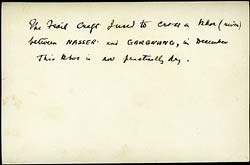 The Frail Craft I used to cross a Khor (river)
between NASSER and GAROKUNG, in December
This Khor is now practically dry.